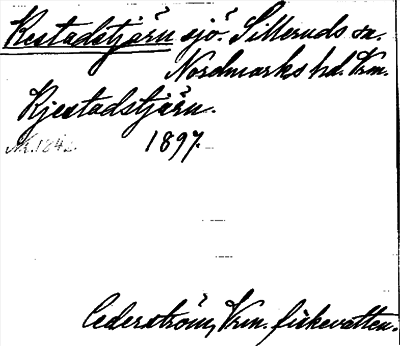 Kestadstjärn sjö. Silleruds sn.
Nordmarks hd. Vrm.
Kjestadstjärn.
1897.
Cederström, Vrm. fiskevatten.